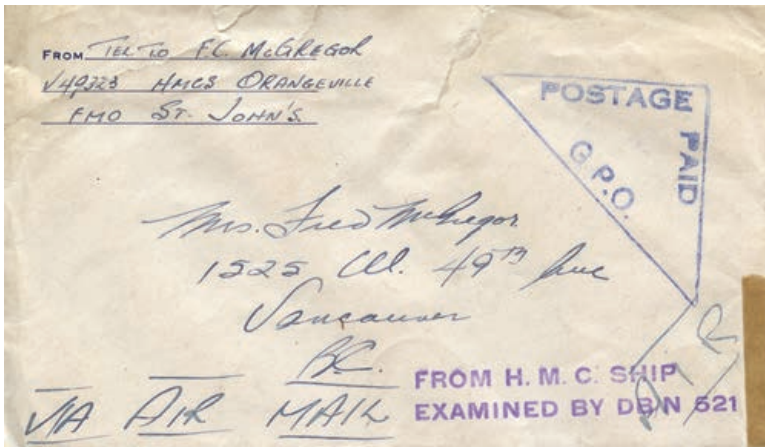 FROM TEL TO F.C. McGREGOR
V49323 HMCS ORANGEVILLE
FMO ST. JOHN'S.
POSTAGE PAID
G.P.O.
Mrs. Fred McGregor
1525 W. 49TH Ave
Vancouver
B.C.
FROM H. M. C. SHIP
EXAMINED BY DB/N 521
VIA AIR MAIL